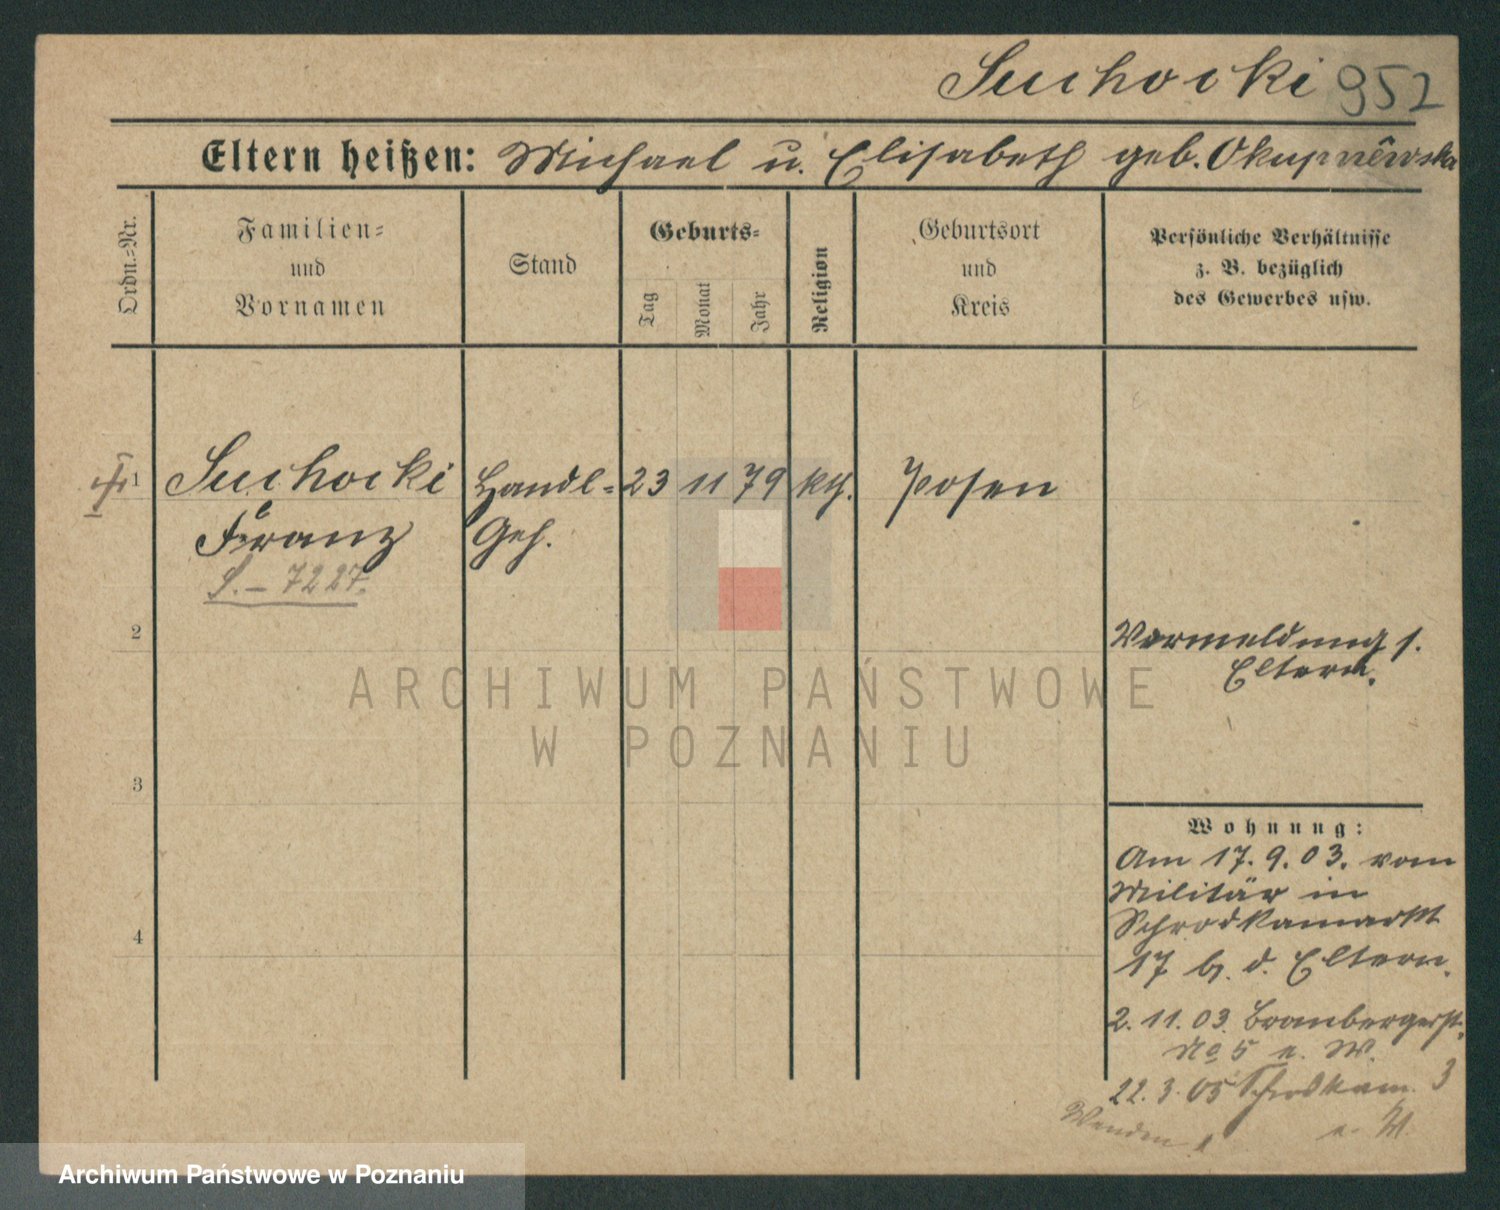 Suchocki 952
Eltern heißen: Michael u. Elisabeth geb. Okupniewska
Ordn.-Nr.
Familien-
und
Vornamen
Stand
Geburts-
Tag
Monat
Jahr
Religion
Geburtsort
und
Kreis
Persönliche Verhältnisse
z. B. bezüglich
des Gewerbes usw.
1 Suchocki Handl- 23 11 79 kth. Posen
Franz Geh.
S. – 7227.
2
Vormeldung s.
Eltern.
3
Wohnung:
Am 17. 9. 03. vom
Militär in
Schrodkamarkt
4
17 b. d. Eltern.
2. 11. 03. Brombergerst.
No 5 e. W.
22. 3. 05 Schrodkam. 3
Wenden! e. W.
ARCHIWUM PAŃSTWOWE
W POZNANIU
Archiwum Państwowe w Poznaniu